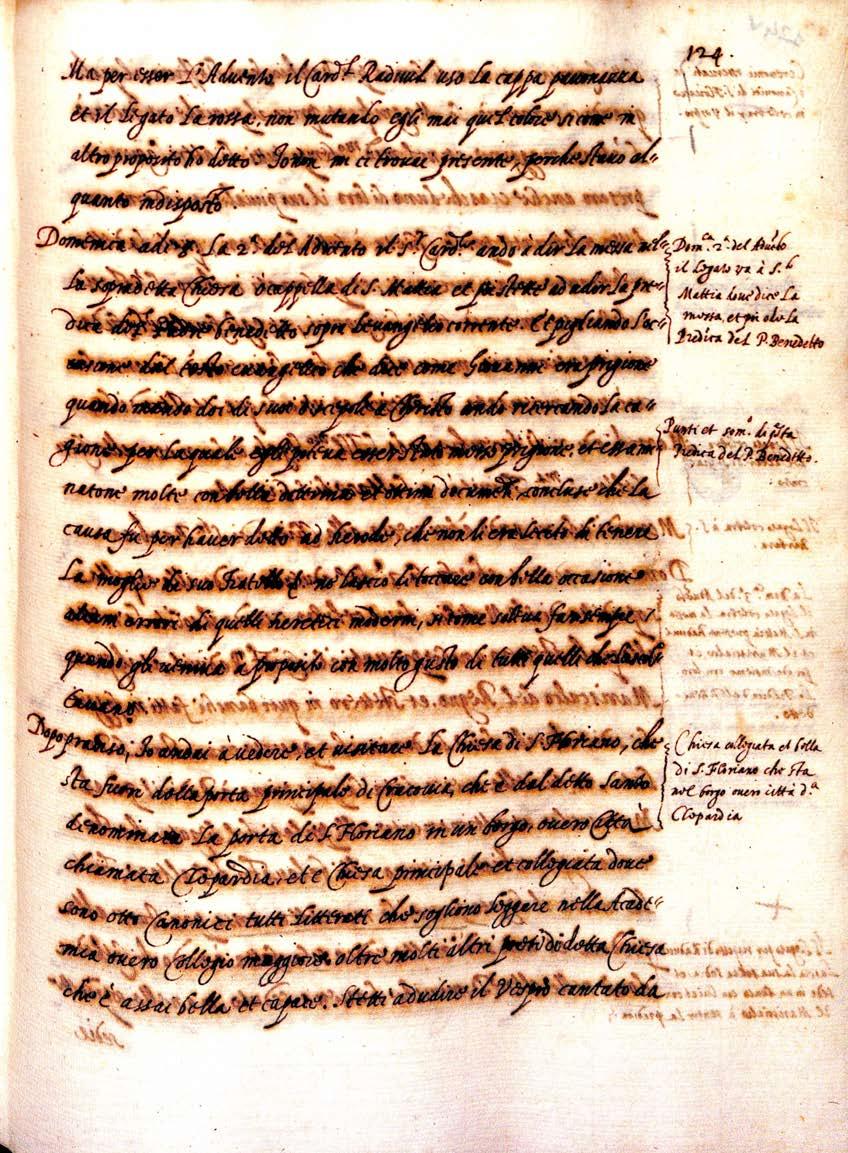 124.
Ma per esser L'Advento il Card.l Radivil uso la cappa pavonazza
et il Legato la rossa, non mutando egli mai quel colore si come in
altro proposito ho detto. Io non mi ci trovai presente, perche stavo al-
quanto indisposto.
Domenica adi 8. La 2.a del Advento il S.r Card.le ando à dir la messa nel-
la sopradetta Chiesa ò cappella di S. Mattia et poi stette ad udir la pre-
dica del Padre benedetto sopra l'evangelio corrente. Et pigliando l'oc-
casione dal testo evangelico che dice come Giovanni era prigione
quando mando doi di suoi discepoli à Christo ando ricercando la ca-
gione per la quale egli poteva esser stato messo prigione. et essami-
natone molte con bella dottrina et ottimi documenti, concluse che la
causa fu per haver detto ad herode, che non li era lecito di tenere
La moglie di suo fratello. E no lascio di toccare con bella occasione
alcuni errori di quelli heretici moderni, si come soleva far sempre
quando gli veniva a proposito con molto gusto di tutti quelli che l'ascol-
tavano.
Dopo pranso, Io andai à vedere, et visitare la Chiesa di S. Floriano, che
sta fuori della porta principale di Cracovia, che è dal detto Santo
denominata La porta di S. Floriano in un borgo, overo Città
chiamata Clopardia, et è Chiesa principale et collegiata dove
sono otto Canonici tutti litterati che sogliono leggere nella Acade-
mia overo Collegio maggiore oltre molti altri preti di detta Chiesa
che è assai bella et capace. Stetti ad udire il Vespro cantato da
Dom.ca 2.a del Adve.to
il Legato va à S.
Mattia dove dice La
messa, et poi ode la
Predica del P. Benedetto
Punti et som.o di q.sta
Predica del P. Benedetto.
Chiesa collegiata et bella
di S. Floriano che sta
nel borgo overo città d.a
Clopardia